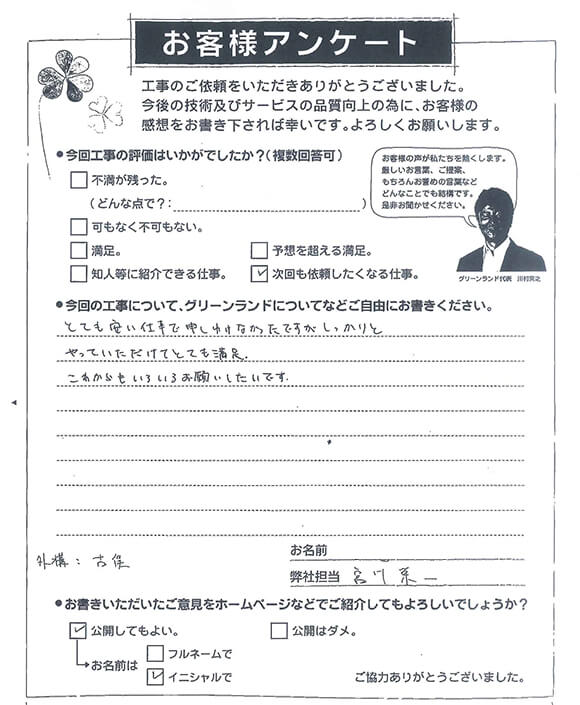 お客様アンケート
工事のご依頼をいただきありがとうございました。
今後の技術及びサービスの品質向上の為に、お客様の
感想をお書き下されば幸いです。よろしくお願いします。
●今回工事の評価はいかがでしたか？(複数回答可)
不満が残った。
(どんな点で？: )
可もなく不可もない。
満足。
予想を超える満足。
知人等に紹介できる仕事。
次回も依頼したくなる仕事。
お客様の声が私たちを熱くします。
厳しいお言葉、ご提案、
もちろんお誉めの言葉など
どんなことでも結構です。
是非お聞かせください。
グリーンランド代表
●今回の工事について、グリーンランドについてなどご自由にお書きください。
とても安い仕事で申しわけなかったですがしっかりと
やっていただけてとても満足.
これからもいろいろお願いしたいです.
外構:
お名前
弊社担当 宮川
●お書きいただいたご意見をホームページなどでご紹介してもよろしいでしょうか？
公開してもよい。
公開はダメ。
お名前は
フルネームで
イニシャルで
ご協力ありがとうございました。